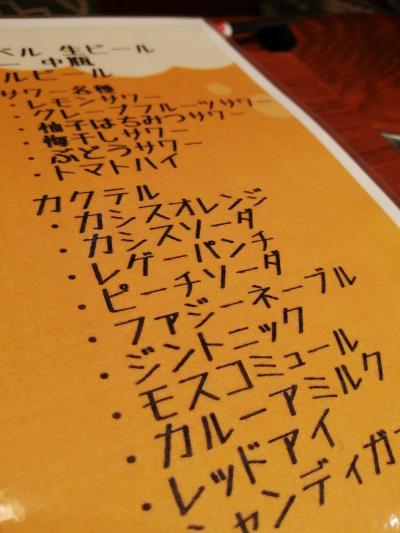 ベル 生ビール
ー 中瓶
ルビール
サワー各種
・レモンサワー
・グレープフルーツサワー
・柚子はちみつサワー
・梅干しサワー
・ぶどうサワー
・トマトハイ
カクテル
・カシスオレンジ
・カシスソーダ
・レゲーパンチ
・ピーチソーダ
・ファジーネーブル
・ジントニック
・モスコミュール
・カルーアミルク
・レッドアイ
・シャンディガ